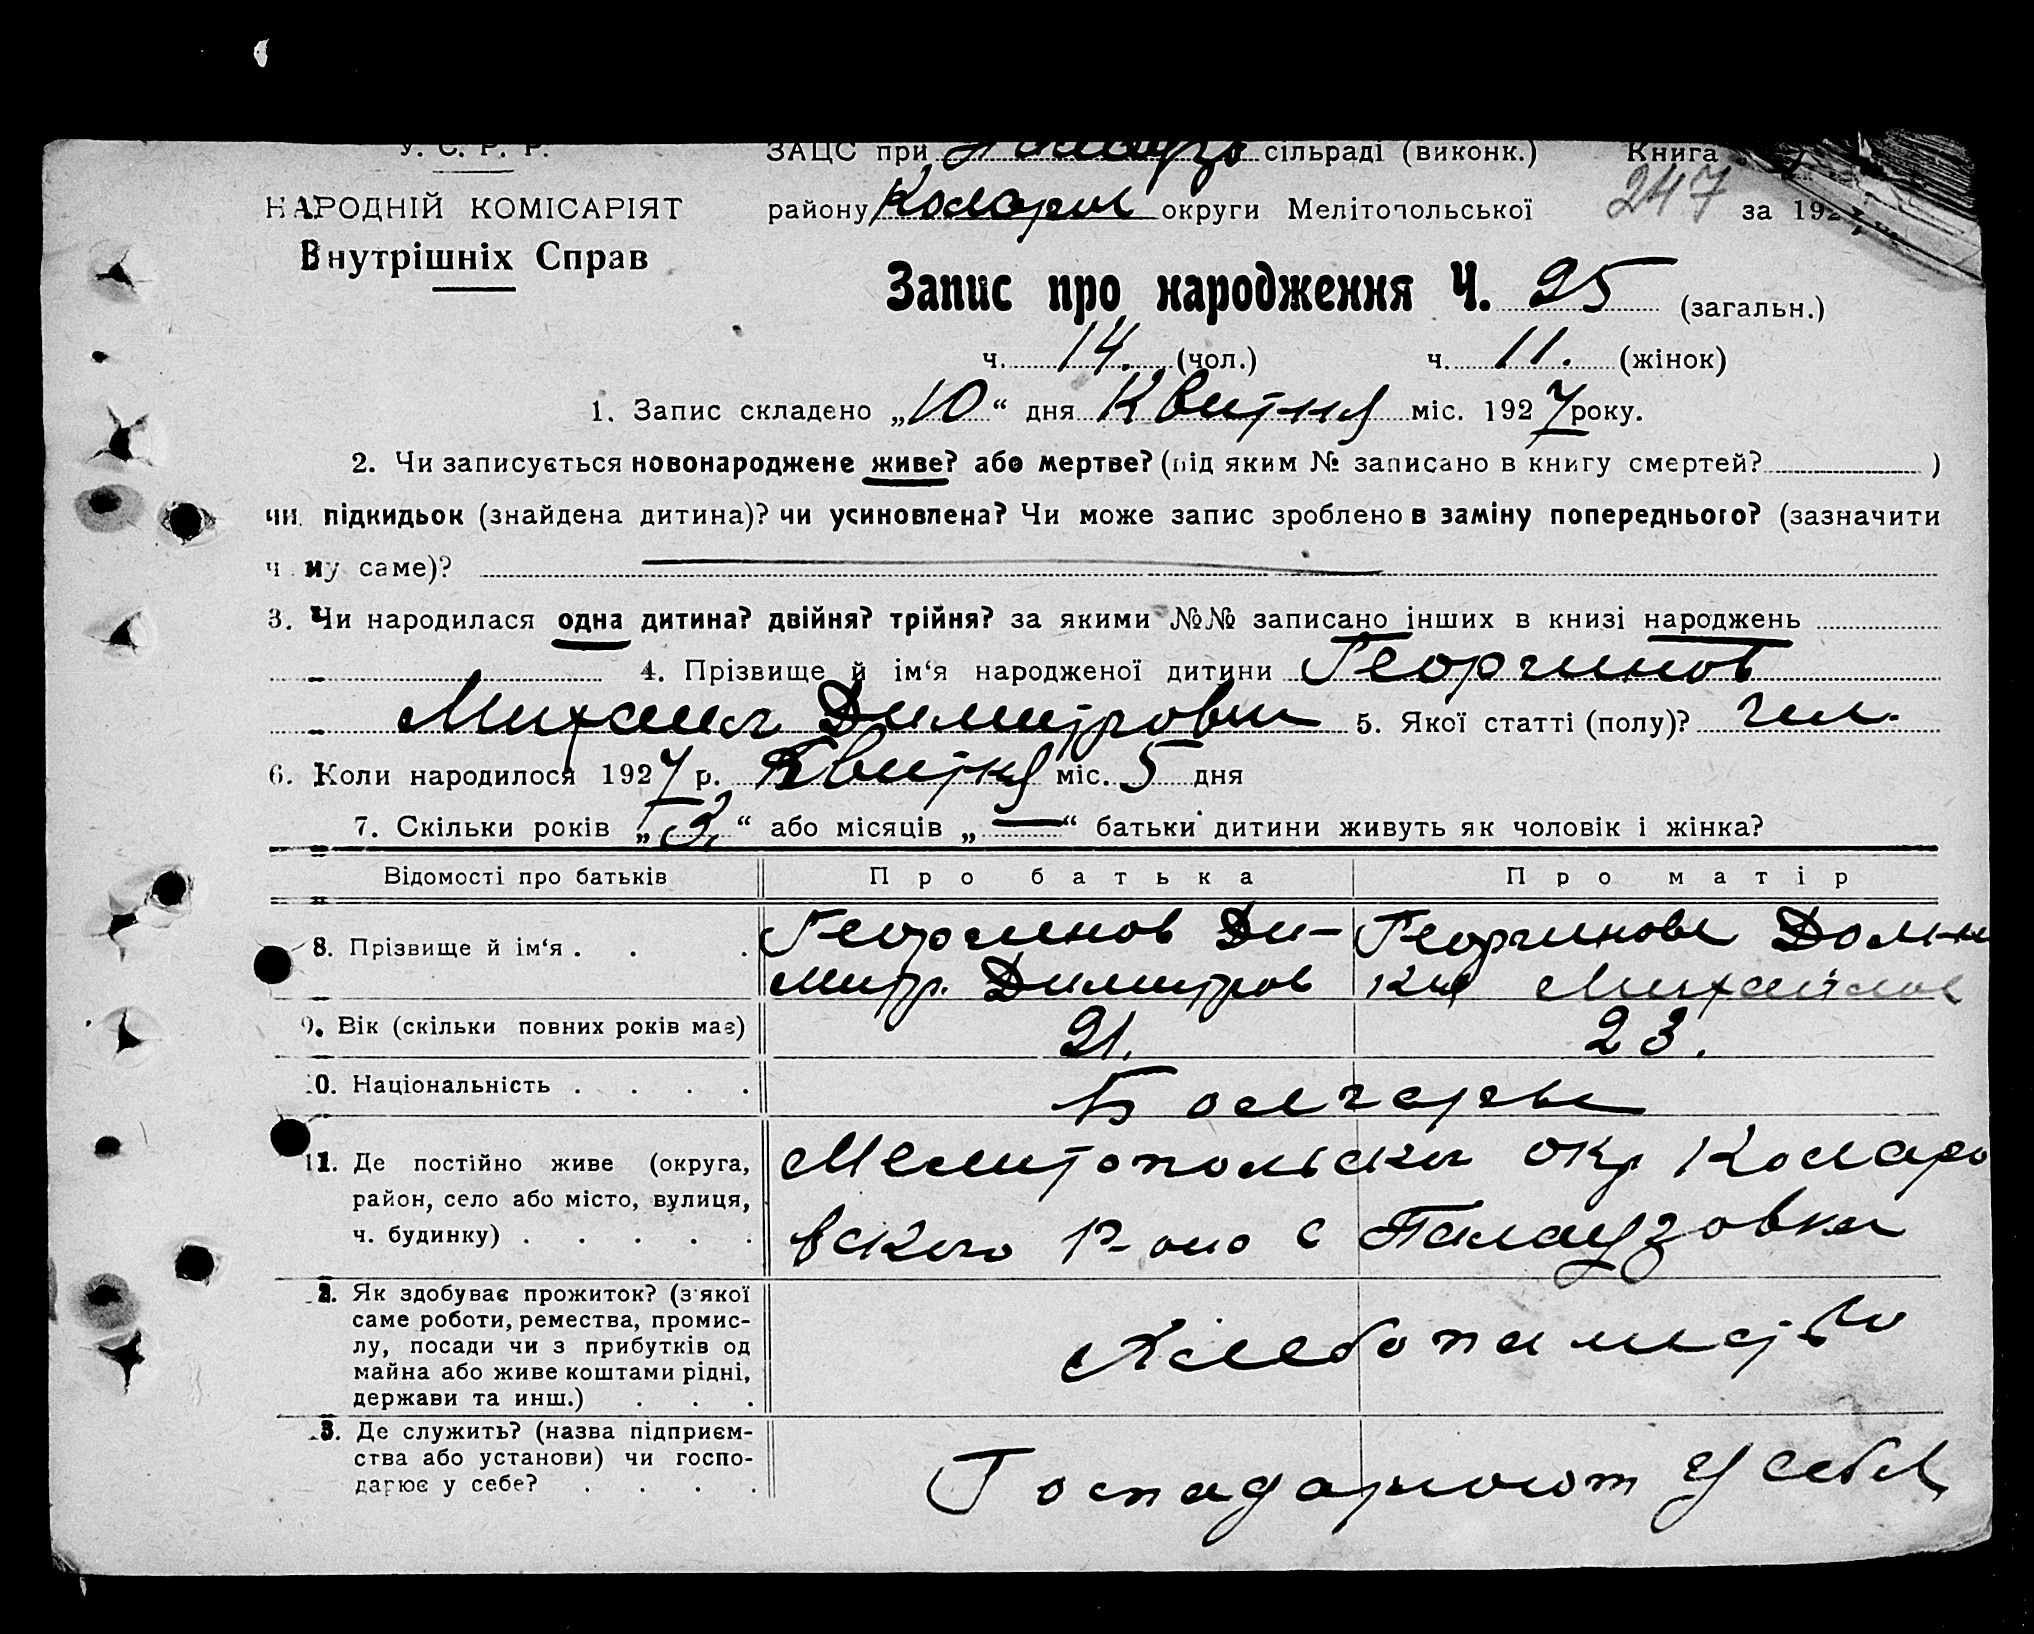 У. С. Р. Р.
ЗАЦС при Палауз сільраді (виконк.) Книга
НАРОДНІЙ КОМІСАРІЯТ
району Коларов округи Мелітопольської 247 за 192
Внутрішніх Справ
Запис про народження Ч. 25 (загальн.)
ч. 14. (чол.) ч. 11. (жінок)
1. Запис складено „10“ дня Квитня міс. 1927 року.
2. Чи записується новонароджене живе? або мертве? (під яким № записано в книгу смертей? )
чи підкидьок (знайдена дитина)? чи усиновлена? Чи може запис зроблено в заміну попереднього? (зазначити
чому саме)?
3. Чи народилася одна дитина? двійня? трійня? за якими №№ записано інших в книзі народжень
4. Прізвище й ім‘я народженої дитини Георгинов
Михаил Димитрови 5. Якої статті (полу)? чол.
6. Коли народилося 1927 р. Квитня міс. 5 дня
7. Скільки років „3.“ або місяців „—“ батьки дитини живуть як чоловік і жінка?
Відомості про батьків Про батька Про матір
8. Прізвище й ім‘я . . . Георгинов Ди- Георгинова Домни
митр. Димитров кия Михайлов
9. Вік (скільки повних років має) 21. 23.
10. Національність . . . . Болгары
11. Де постійно живе (округа, Мелитопольска окр Коларо
район, село або місто, вулиця,
ч. будинку) . . . . . вского Р-оно с Палаузовка
12. Як здобуває прожиток? (з якої
саме роботи, ремества, промис-
лу, посади чи з прибутків од Хлебопашество
майна або живе коштами рідні,
держави та инш.) . . .
13. Де служить? (назва підприєм-
ства або установи) чи госпо- Госпадарюют у себе
дарює у себе? . . . .